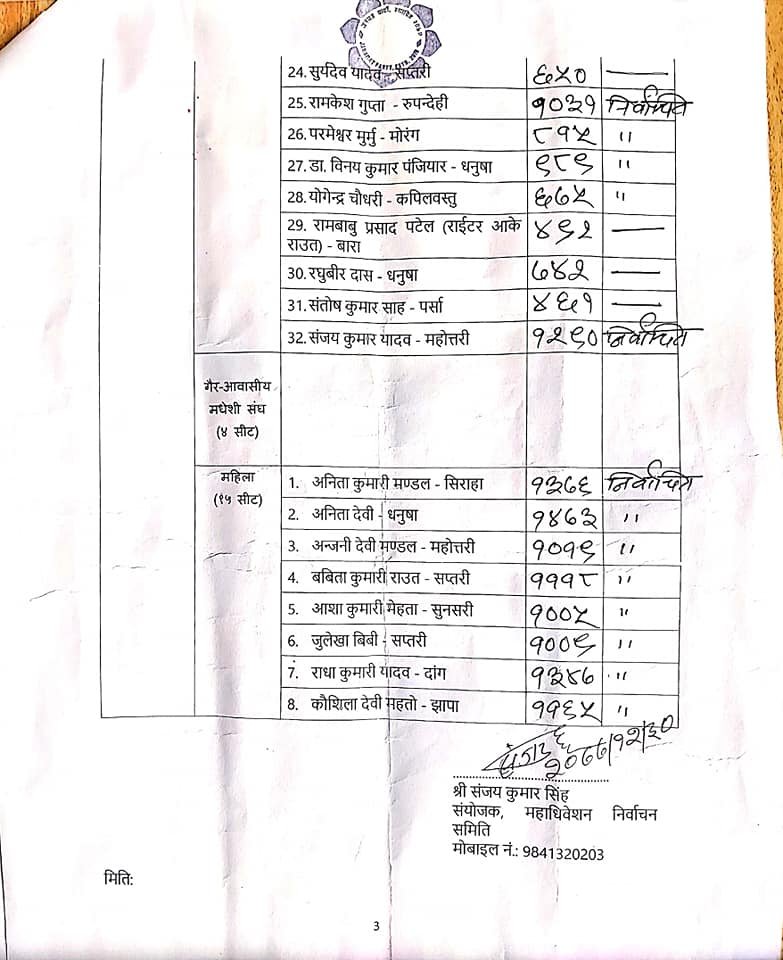 24. सुर्यदेव यादव - सप्तरी ६५० —
25. रामकेश गुप्ता - रुपन्देही १०३१ निर्वाचित
26. परमेश्वर मुर्मु - मोरंग ८१५ "
27. डा. विनय कुमार पंजियार - धनुषा ९८९ "
28. योगेन्द्र चौधरी - कपिलवस्तु ६७५ "
29. रामबाबु प्रसाद पटेल (राईटर आके
राउत) - बारा ४९२ —
30. रघुबीर दास - धनुषा ७४२ —
31. संतोष कुमार साह - पर्सा ४६१ —
32. संजय कुमार यादव - महोत्तरी १२९० निर्वाचित
गैर-आवासीय
मधेशी संघ
(४ सीट)
महिला
(१५ सीट)
1. अनिता कुमारी मण्डल - सिराहा १३७६ निर्वाचित
2. अनिता देवी - धनुषा १४६३ "
3. अन्जनी देवी मण्डल - महोत्तरी १०१९ "
4. बबिता कुमारी राउत - सप्तरी १११८ "
5. आशा कुमारी मेहता - सुनसरी १००५ "
6. जुलेखा बिबी - सप्तरी १००९ "
7. राधा कुमारी यादव - दांग १३४७ "
8. कौशिला देवी महतो - झापा ११६५ "
२०७७/१२/३०
श्री संजय कुमार सिंह
संयोजक, महाधिवेशन निर्वाचन
समिति
मोबाइल नं.: 9841320203
मिति:
3